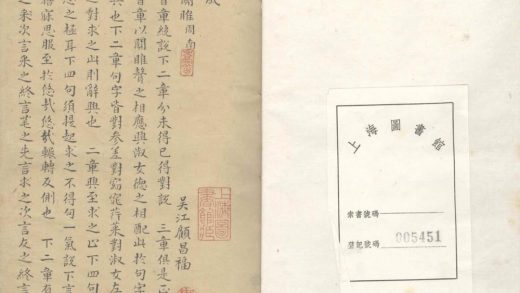 上海圖書館
索書號碼
登記號碼 005451
成
吳江顧昌福
關雎周南
首章總説下二章分未得已得對説 三章俱是正
首章以關雎聲之相應興淑女德之相配此於句字
興也下二章句字皆對參差對窈窕荇菜對淑女左
之對求之此則辭興也 二章興至求之止下四句
思之極耳下四句須提起求之不得句一氣説下言
寤寐思服至於悠哉悠哉輾轉反側也 下二章有
之采次言采之終言芼之先言求之次言友之終言
上海圖書館藏